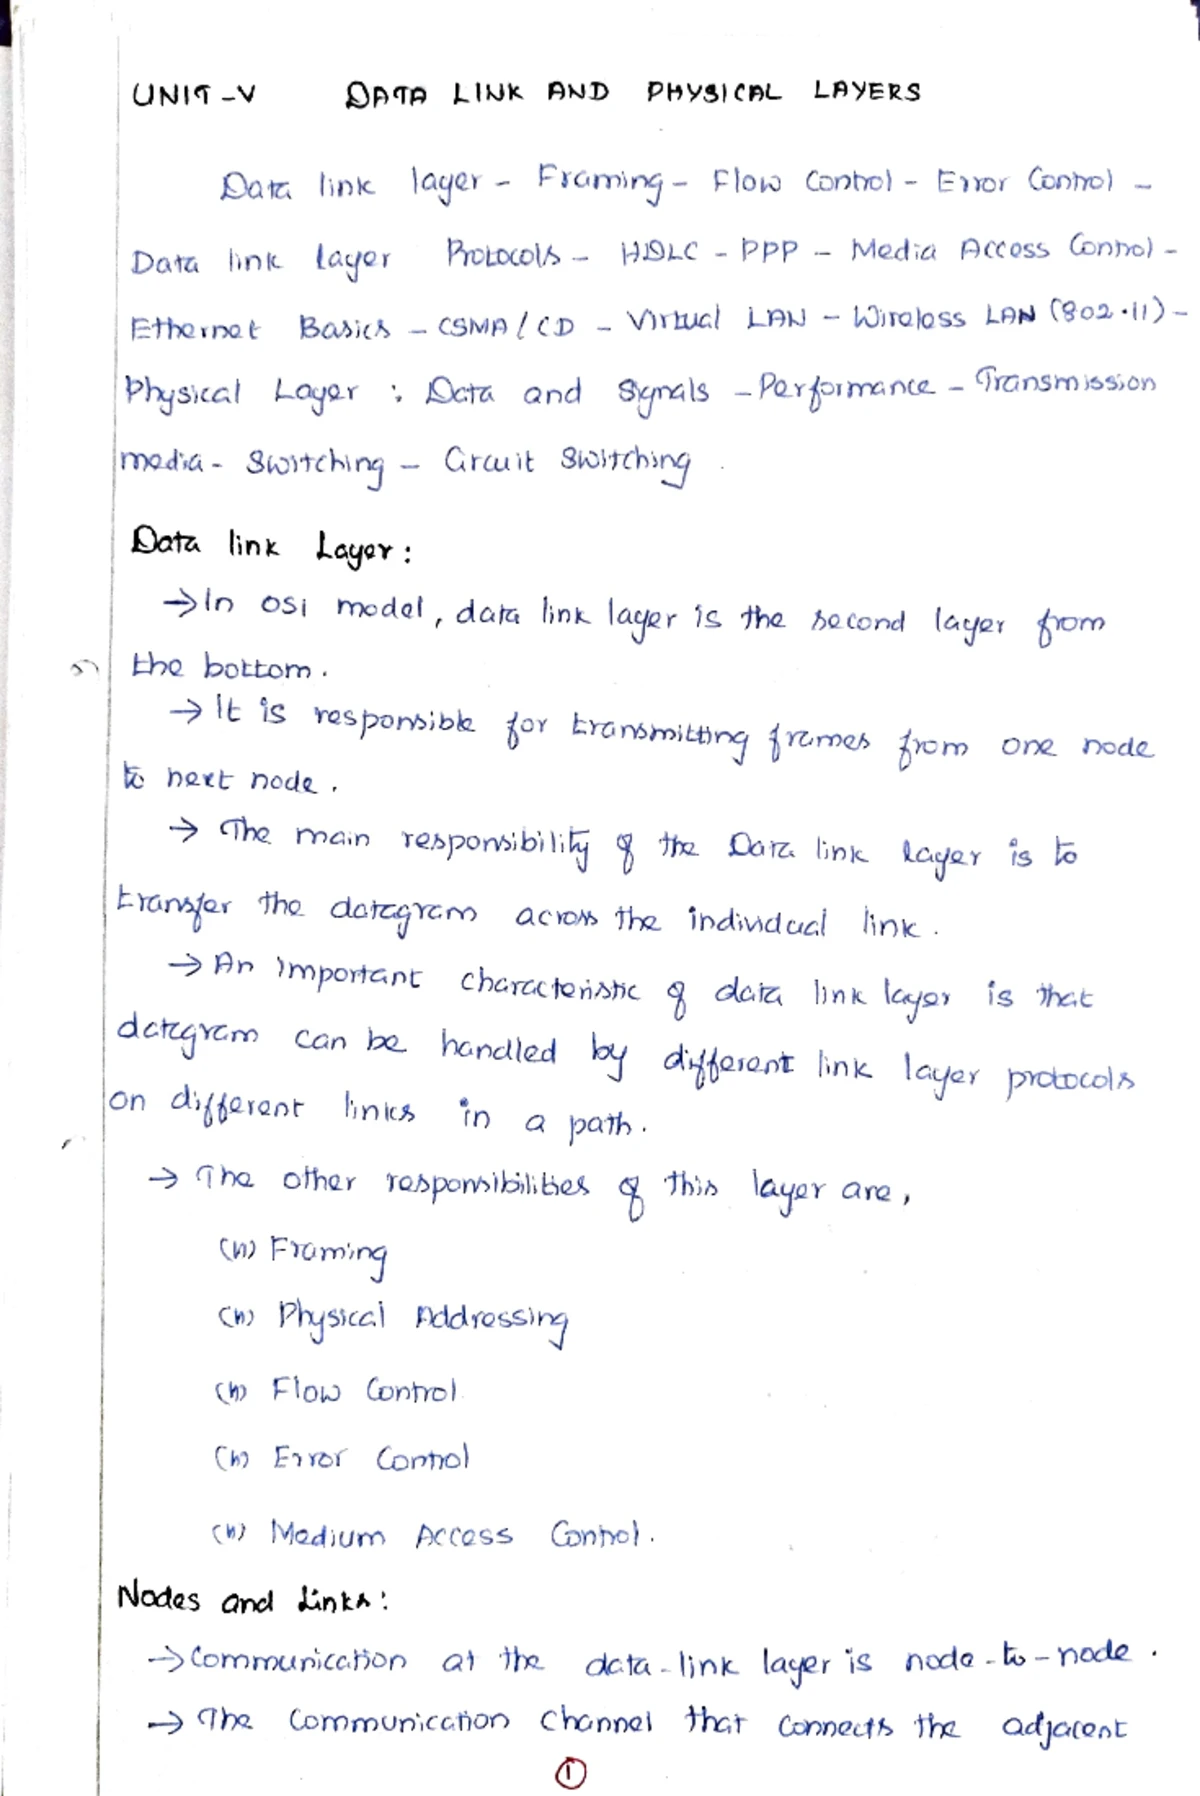 UNIT-V DATA LINK AND PHYSICAL LAYERS
Data link layer - Framing - Flow Control - Error Control -
Data link layer Protocols - HDLC - PPP - Media Access Control -
Ethernet Basics - CSMA/CD - Virtual LAN - Wireless LAN (802.11) -
Physical Layer : Data and Signals - Performance - Transmission
media - Switching - Circuit Switching.
Data link Layer:
→ In OSI model, data link layer is the second layer from
the bottom.
→ It is responsible for transmitting frames from one node
to next node.
→ The main responsibility of the Data link layer is to
transfer the datagram across the individual link.
→ An important characteristic of data link layer is that
datagram can be handled by different link layer protocols
on different links in a path.
→ The other responsibilities of this layer are,
Framing
Physical Addressing
Flow Control
Error Control
Medium Access Control.
Nodes and Links:
→ Communication at the data-link layer is node-to-node.
→ The Communication channel that connects the adjacent
1